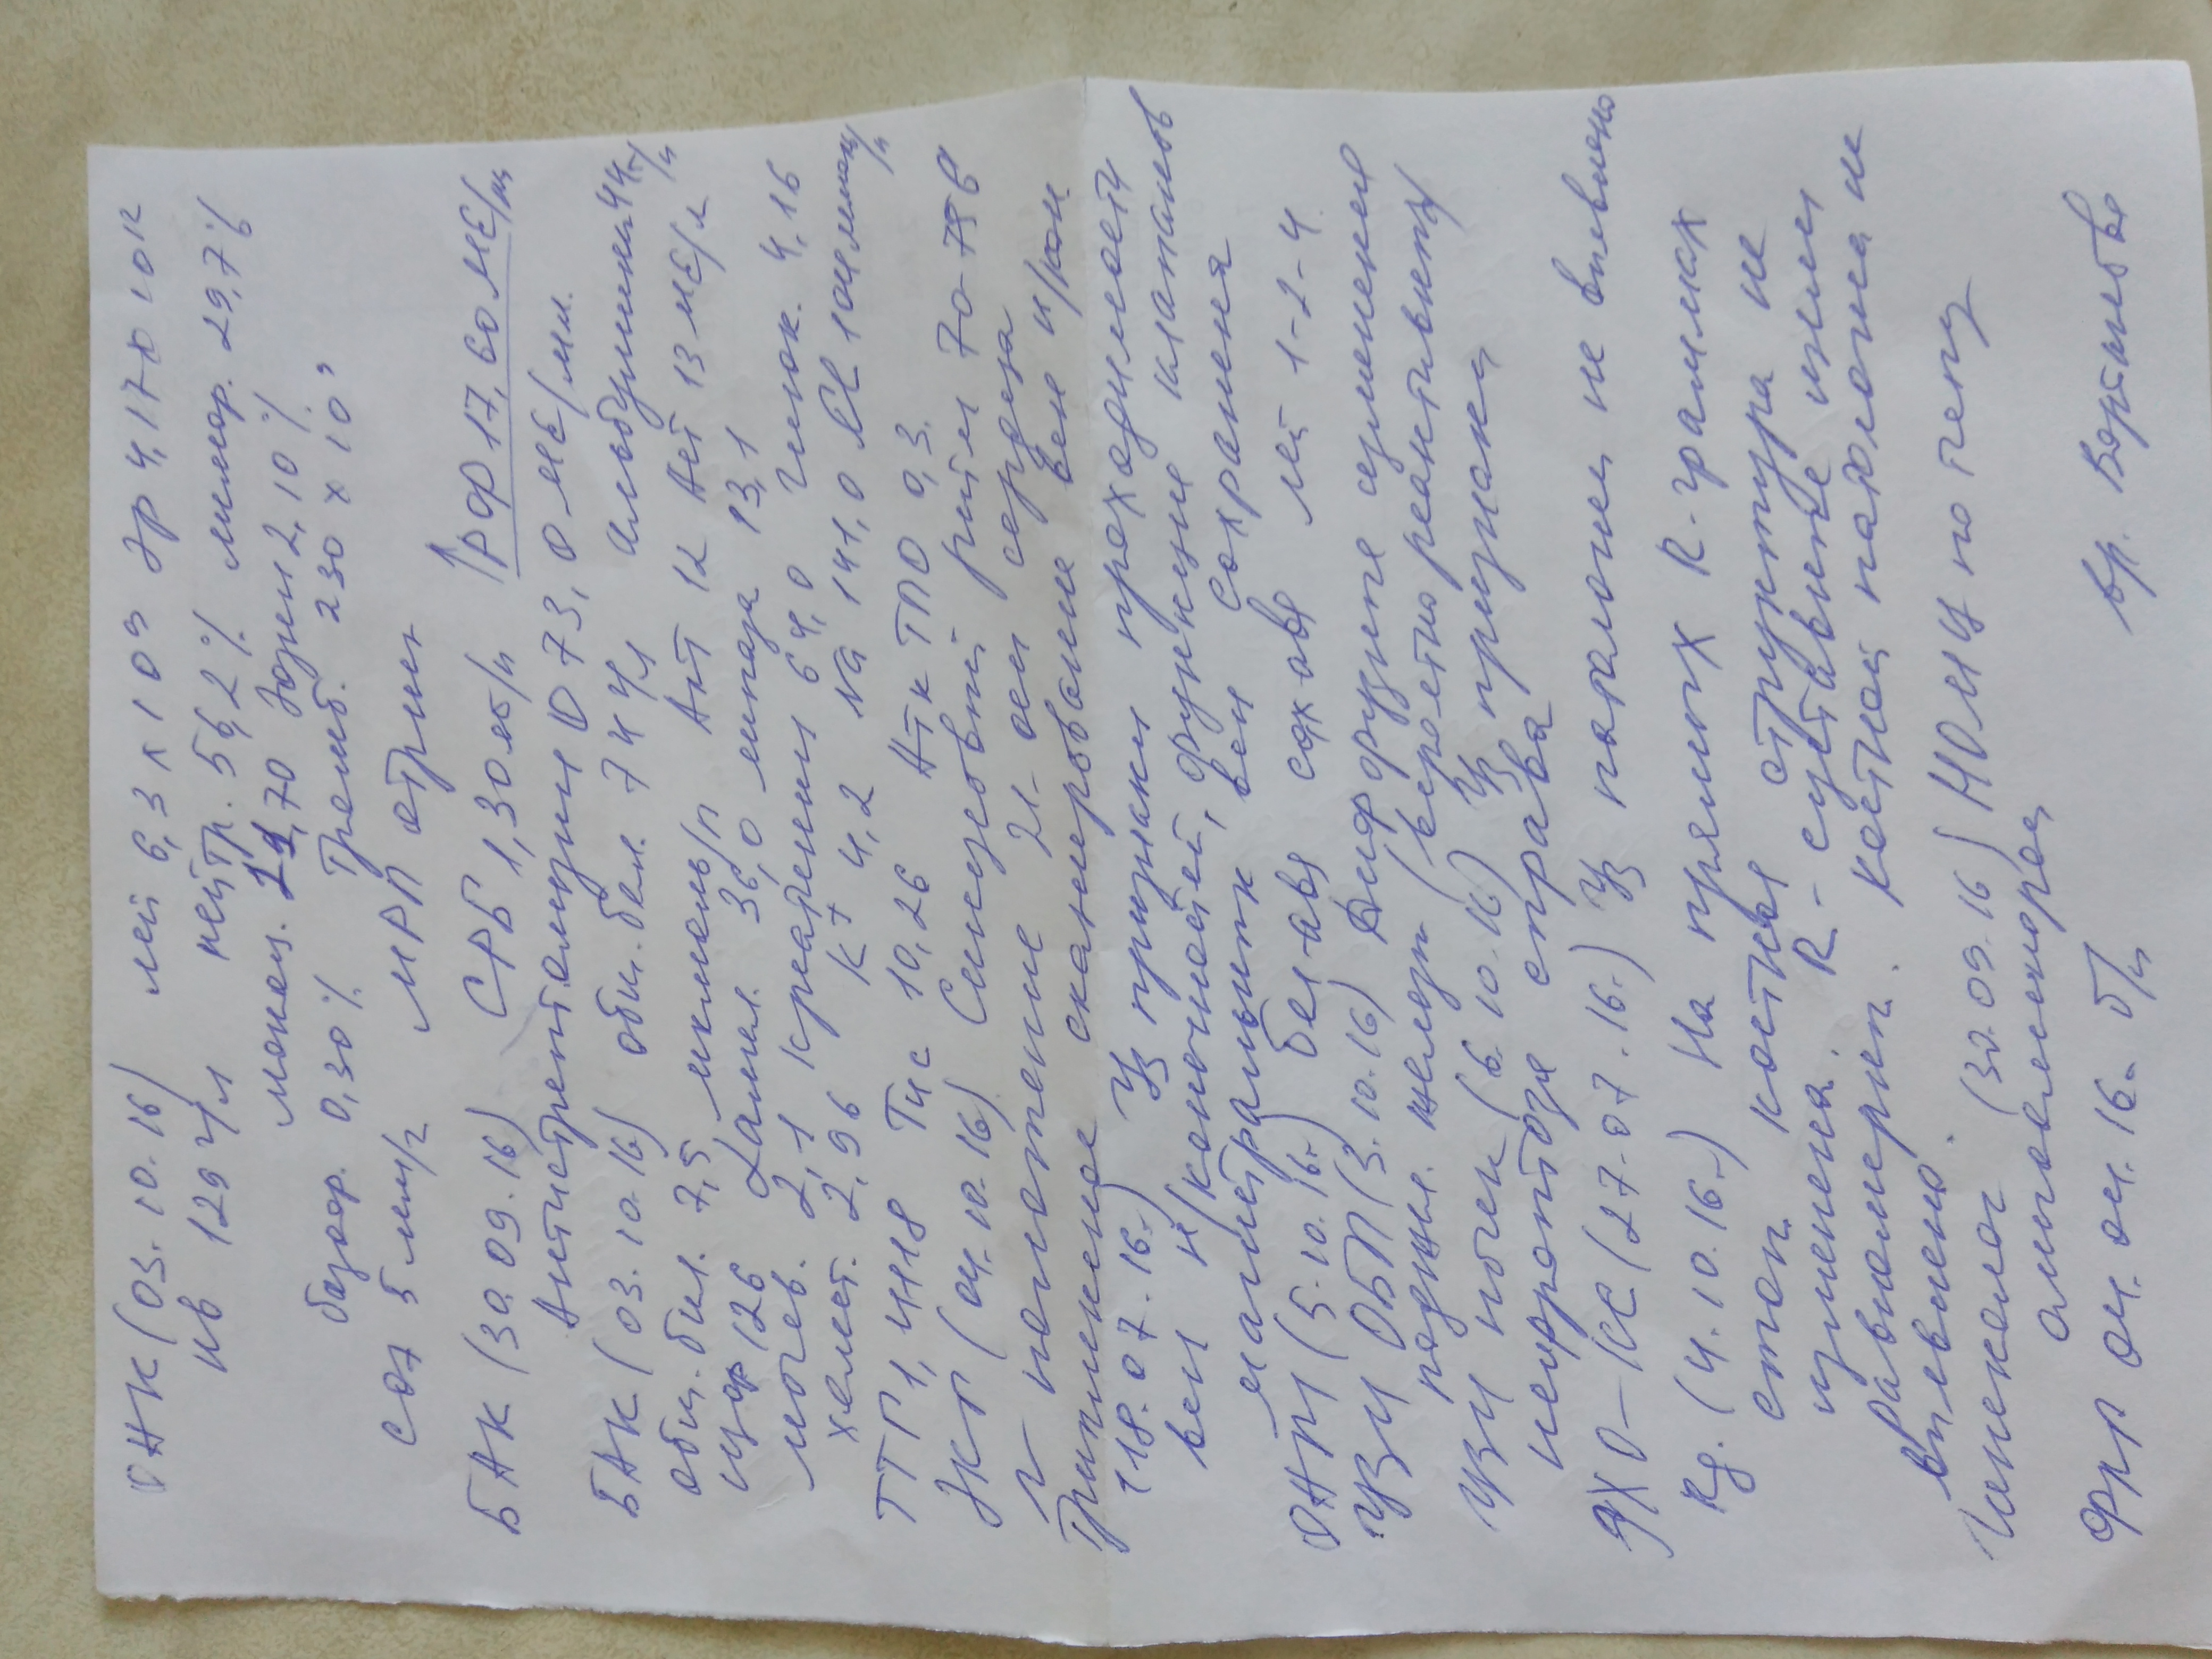 ОАК (03.10.16) лей 6,3 х 10⁹ Эр 4,17 х 10¹²
Нв 129 г/л нейтр. 56,2 % лимф. 29,7 %
моноц. 11,70 эозин 2,10 %
базоф. 0,30 % Тромб. 230 х 10⁹
СОЭ 5 мм/г МРП отриц
БАК (30.09.16) СРБ 1,30 мг/л ↑РФ 17,60 МЕ/мл
Антистрептолизин О 73,0 МЕ/мл.
БАК (03.10.16) общ. бел. 74 г/л альбумин 44 г/л
общ. бил. 7,5 мкмоль/л АлТ 12 АсТ 13 МЕ/л
ЩФ 126 амил. 36,0 липаза 13,1
мочев. 2,1 креатинин 64,0 глюк. 4,16
холест. 2,96 К+ 4,2 Na 141,0 Cl 104 ммоль/л
ТТГ 1,4418 10,26 АТ к ТПО 0,3.
ЭКГ (04.10.16) Синусовый ритм 70-75 в
Г-положение эл-оси сердца
Триплексное сканирование вен н/кон
(18.07.16.) Уз признаки проходимости
вен н/конечностей, функция клапанов
магистральных вен сохранена
ОАМ (5.10.16.) бел-abs сах-abs лей 1-2-4
УЗИ ОБП (3.10.16) Диффузные изменения
поджел. железы (вероятно реактивные)
УЗИ почек (6.10.16) Уз признаки
нефроптоза справа
ЭХО-КС (27.07.16.) Уз патологии не выявлено
Rg. (4.10.16.) На прямых R-граммах
стоп костная структура не
изменена. R-суставные щели
равномерны. Костной патологии не
выявлено.
Гинеколог (30.09.16) НОМЦ по типу
олигоменореи
ФЛГ 04.16. б/п вр.